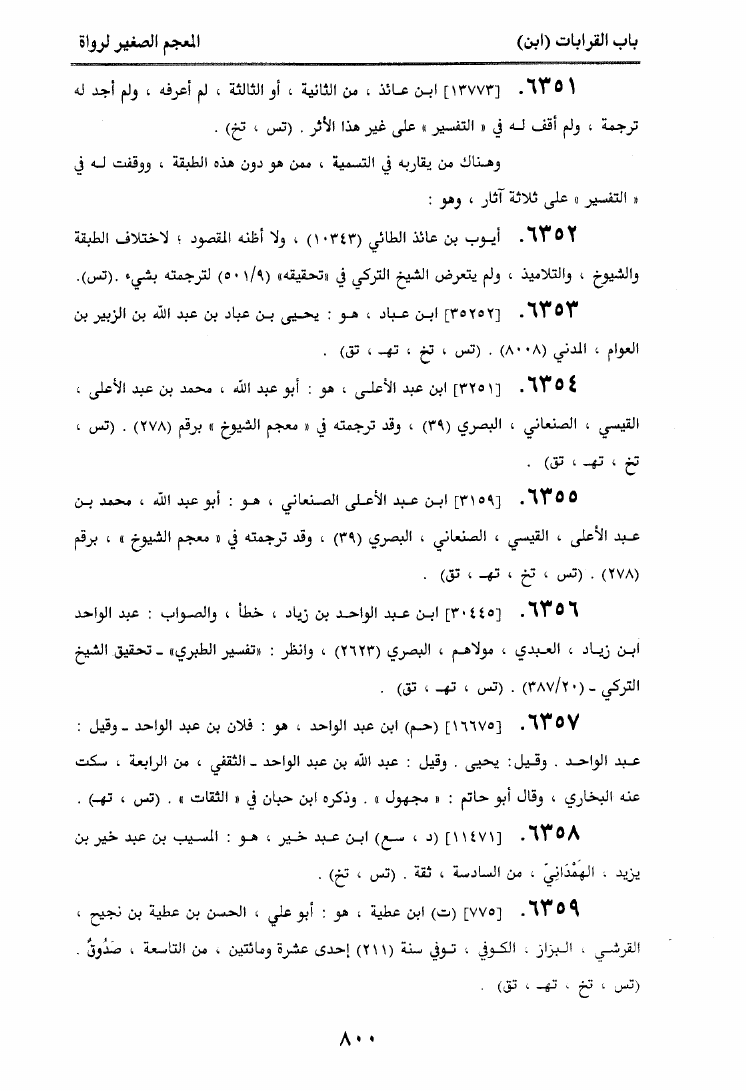 باب القرابات (ابن)
المعجم الصغير لرواة
٦٣٥١. [١٣٧٧٣] ابن عائذ ، من الثانية ، أو الثالثة ، لم أعرفه ، ولم أجد له
ترجمة ، ولم أقف له في « التفسير » على غير هذا الأثر . (تس ، تخ) .
وهناك من يقاربه في التسمية ، ممن هو دون هذه الطبقة ، ووقفت له في
« التفسير » على ثلاثة آثار ، وهو :
٦٣٥٢. أيوب بن عائذ الطائي (١٠٣٤٣) ، ولا أظنه المقصود ؛ لاختلاف الطبقة
والشيوخ ، والتلاميذ ، ولم يتعرض الشيخ التركي في «تحقيقه» (٥٠١/٩) لترجمته بشيء .(تس).
٦٣٥٣. [٣٥٢٥٢] ابن عباد ، هو : يحيى بن عباد بن عبد الله بن الزبير بن
العوام ، المدني (٨٠٠٨) . (تس ، تخ ، تهـ ، تق) .
٦٣٥٤. [٣٢٥١] ابن عبد الأعلى ، هو : أبو عبد الله ، محمد بن عبد الأعلى ،
القيسي ، الصنعاني ، البصري (٣٩) ، وقد ترجمته في « معجم الشيوخ » برقم (٢٧٨) . (تس ،
تخ ، تهـ ، تق) .
٦٣٥٥. [٣١٥٩] ابن عبد الأعلى الصنعاني ، هو : أبو عبد الله ، محمد بن
عبد الأعلى ، القيسي ، الصنعاني ، البصري (٣٩) ، وقد ترجمته في « معجم الشيوخ » ، برقم
(٢٧٨) . (تس ، تخ ، تهـ ، تق) .
٦٣٥٦. [٣٠٤٤٥] ابن عبد الواحد بن زياد ، خطأ ، والصواب : عبد الواحد
ابن زياد ، العبدي ، مولاهم ، البصري (٢٦٢٣) ، وانظر : «تفسير الطبري» ـ تحقيق الشيخ
التركي ـ (٣٨٧/٢٠) . (تس ، تهـ ، تق) .
٦٣٥٧. [١٦٦٧٥] (حم) ابن عبد الواحد ، هو : فلان بن عبد الواحد ـ وقيل :
عبد الواحد . وقيل: يحيى . وقيل : عبد الله بن عبد الواحد ـ الثقفي ، من الرابعة ، سكت
عنه البخاري ، وقال أبو حاتم : « مجهول » . وذكره ابن حبان في « الثقات » . (تس ، تهـ) .
٦٣٥٨. [١١٤٧١] (د ، سع) ابن عبد خير ، هو : المسيب بن عبد خير بن
يزيد ، الهَمْدَانِيّ ، من السادسة ، ثقة . (تس ، تخ) .
٦٣٥٩. [٧٧٥] (ت) ابن عطية ، هو : أبو علي ، الحسن بن عطية بن نجيح ،
القرشي ، البزاز ، الكوفي ، توفي سنة (٢١١) إحدى عشرة ومائتين ، من التاسعة ، صَدُوقٌ .
(تس ، تخ ، تهـ ، تق) .
٨٠٠